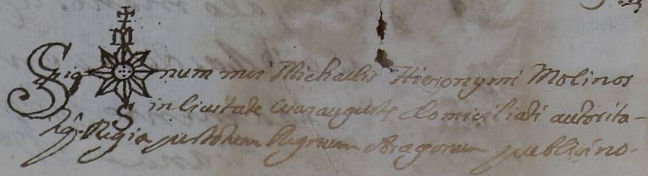 Sig num mei Michaelis Hieronymi Molinos
in Civitate Cesarauguste Domiciliati autorita-
Regia per totum Regnum Aragonum publici no-